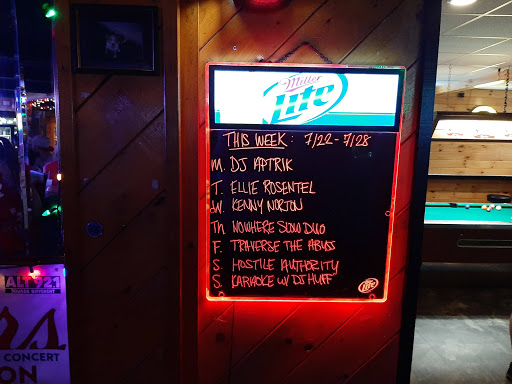 Miller
Lite
THIS WEEK: 7/22 - 7/28
M. DJ APTRIK
T. ELLIE ROSENTEL
W. KENNY NORTON
Th. NOWHERE SLOW DUO
F. TRAVERSE THE ABYSS
S. HOSTILE AUTHORITY
S. KARAOKE W/ DJ HUFF
Lite
ALT 92.1
CONCERT
ON